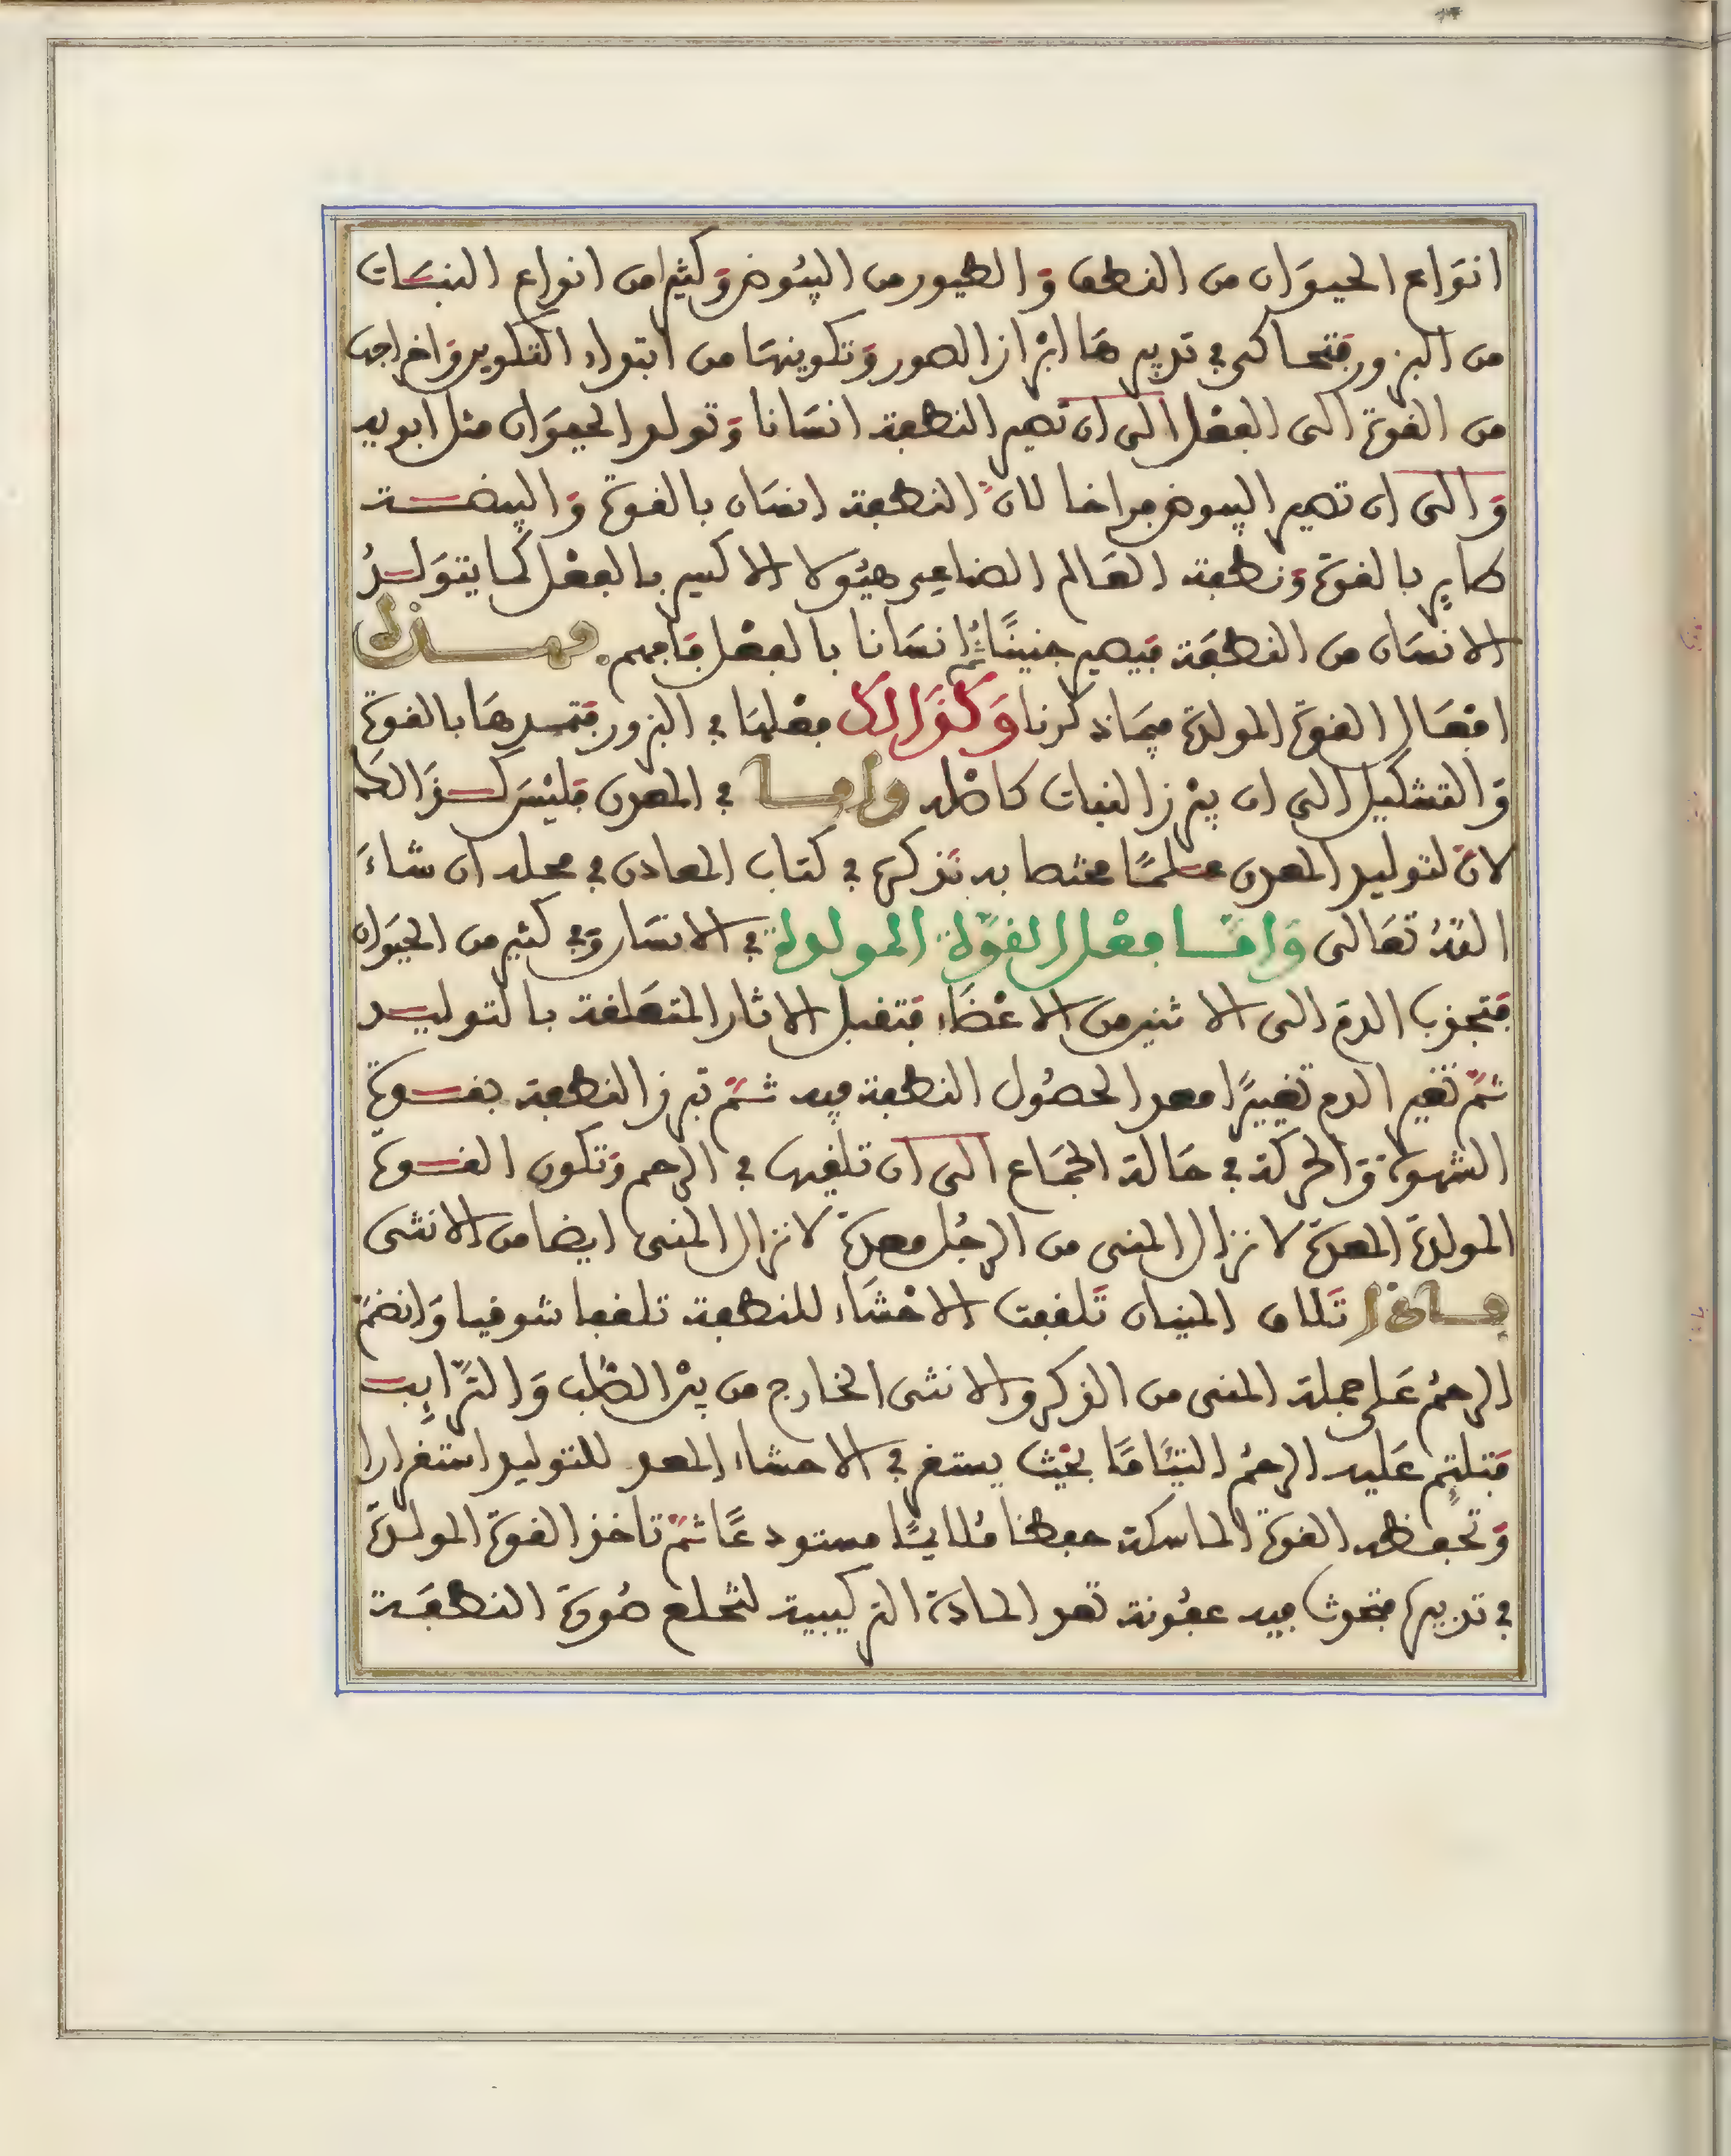 انوَاع الحيوَان من النطف وَالطيور من البيُوض وَكثير من انواع النبَات
من البزور فتحاكي في تدبيرهَا ابْراز الصور وَتكوينهَا من ابتداء التكوين وَاخراجها
من القوة الى الفعْل الى ان تصير النطفة انسَانا وَتولد الحيوَان مثل ابويه
وَالى ان تصير البيوض فراخا لانّ النطفة انسَان بالقوة وَالبيضة
طاير بالقوة وَنطفة العَالم الصناعي هيُولا الاكسير بالفعْل كمَا يتوَلدُ
الانسَان من النطفَة فيَصير جنينًا ثمّ انسَانا بالفعْل فَافهم فهذه
افعَال القوة المولدة فيمَا ذكرنا وَكذَالك فعْلهَا في البزور فتمدهَا بالقوة
وَالتشكيل الى ان يبْرز النبات كاصْله وامَّا في المعدن فليْس كذَالك
لانّ لتوليد المعدن علمًا مختصا به نَذكره في كتاب المعادن في محله ان شاءَ
اللّهُ تعَالى وَامَّا فعْل القوَّة المولدة في الانسَان وَفي كثير من الحيَوان
فَتجذب الدم الى الانثيين من الاعْضَاء فتقبل الاثار المتعَلقة بالتوليد
ثمّ تغير الدم تغييرًا معدا لحصُول النطفة فيه ثمّ تبرز النطفة بقوة
الشهوة وَالحركة في حَالة الجمَاع الى ان تلقيها في الرحم وَتكون القوة
المولدة المعدة لانزال المني من الرجُل معدة لانزال المني ايضا من الانثى
فاذا تَلاق المنيان تَلقفت الاحْشَاء للنطفة تلقفا شوقيا وَانضمّ
الرحمُ عَلى جملة المني من الذكر والانثى الخارج من بيْن الصّلب وَالتّرَايِب
فَتلتئم عَليه الرحمُ التئَامًا بحيْث يستقر في الاحشاء المعد للتوليد استقرارا
وَتحفظه القوة الماسكة حفظا مُلايمًا مستودعًا ثمّ تاخذ القوة المولدة
في تدبيره فتحدث فيه عفُونة تعد المادة التركيبية لتخلع صُورَة النطفَة